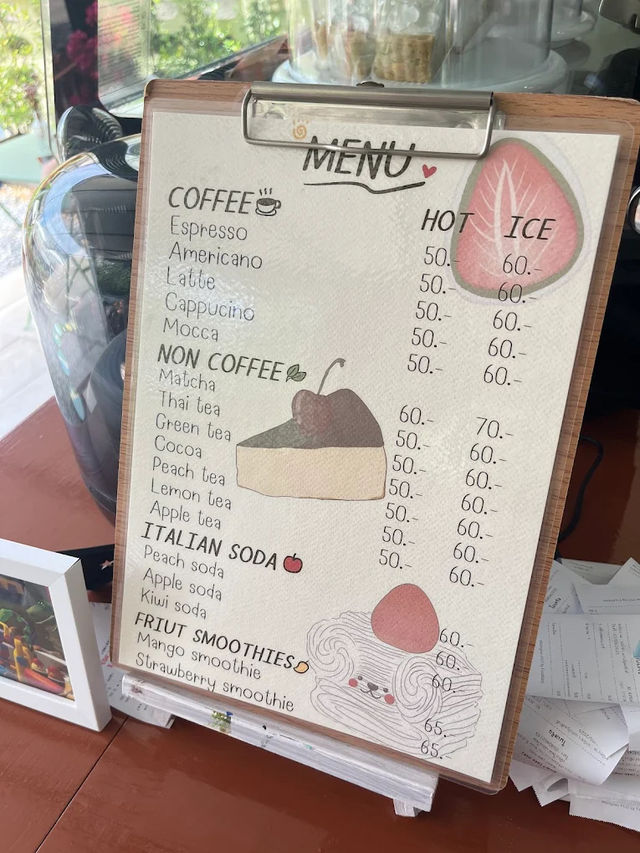 MENU
COFFEE HOT ICE
Espresso 50.- 60.-
Americano 50.- 60.-
Latte 50.- 60.-
Cappucino 50.- 60.-
Mocca 50.- 60.-
NON COFFEE
Matcha 60.- 70.-
Thai tea 50.- 60.-
Green tea 50.- 60.-
Cocoa 50.- 60.-
Peach tea 50.- 60.-
Lemon tea 50.- 60.-
Apple tea 50.- 60.-
ITALIAN SODA
Peach soda 60.-
Apple soda 60.-
Kiwi soda 60.-
FRIUT SMOOTHIES
Mango smoothie 65.-
Strawberry smoothie 65.-